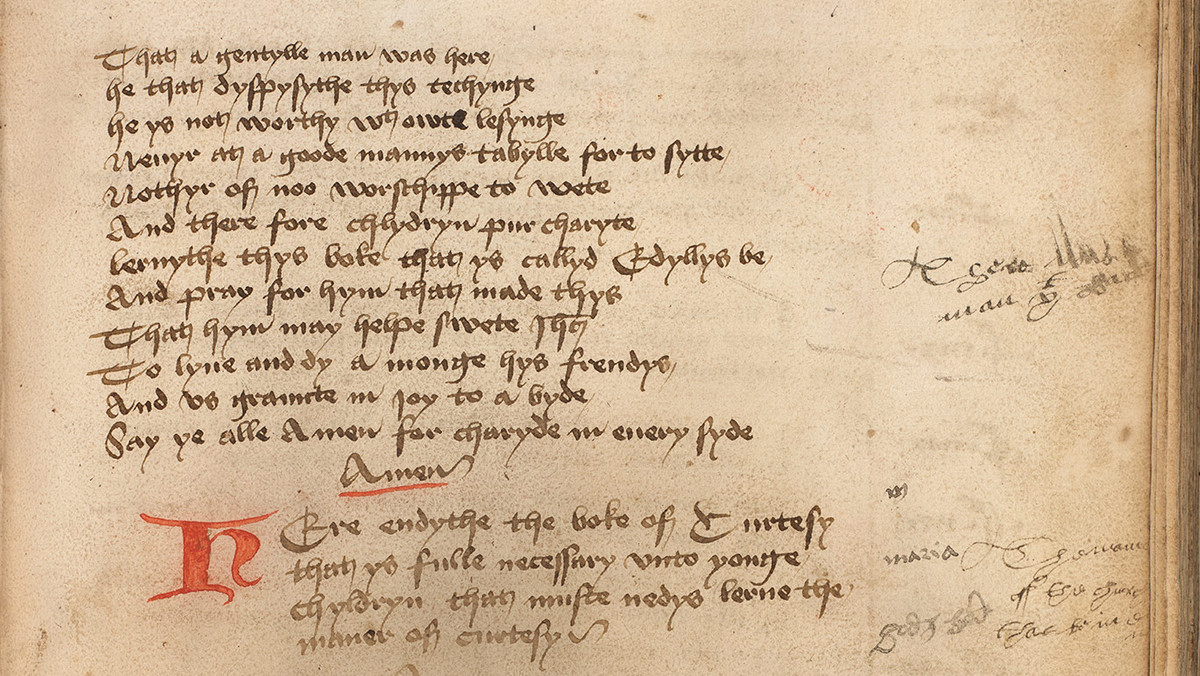 That a gentylle man was here
he that dyspysythe thys techynge
he ys not worthy wt owte lesynge
Nevyr at a goode mannys tabylle for to sytte
Nothyr of noo worschippe to wete
And there fore chyldryn pur charyte
lernythe thys boke that ys callyd Edyllys be
And pray for hym that made thys
That hym may helpe swete Ihc
To lyue and dy a monge hys frendys
And vs graunte in Joy to a byde
Say ye alle Amen for charyde in euery syde
Amen
HEre endythe the boke of Curtesy
that ys fulle necessary vnto yonge
chyldryn that muste nedys lerne the
maner of curtesy
man
maria
of the
that